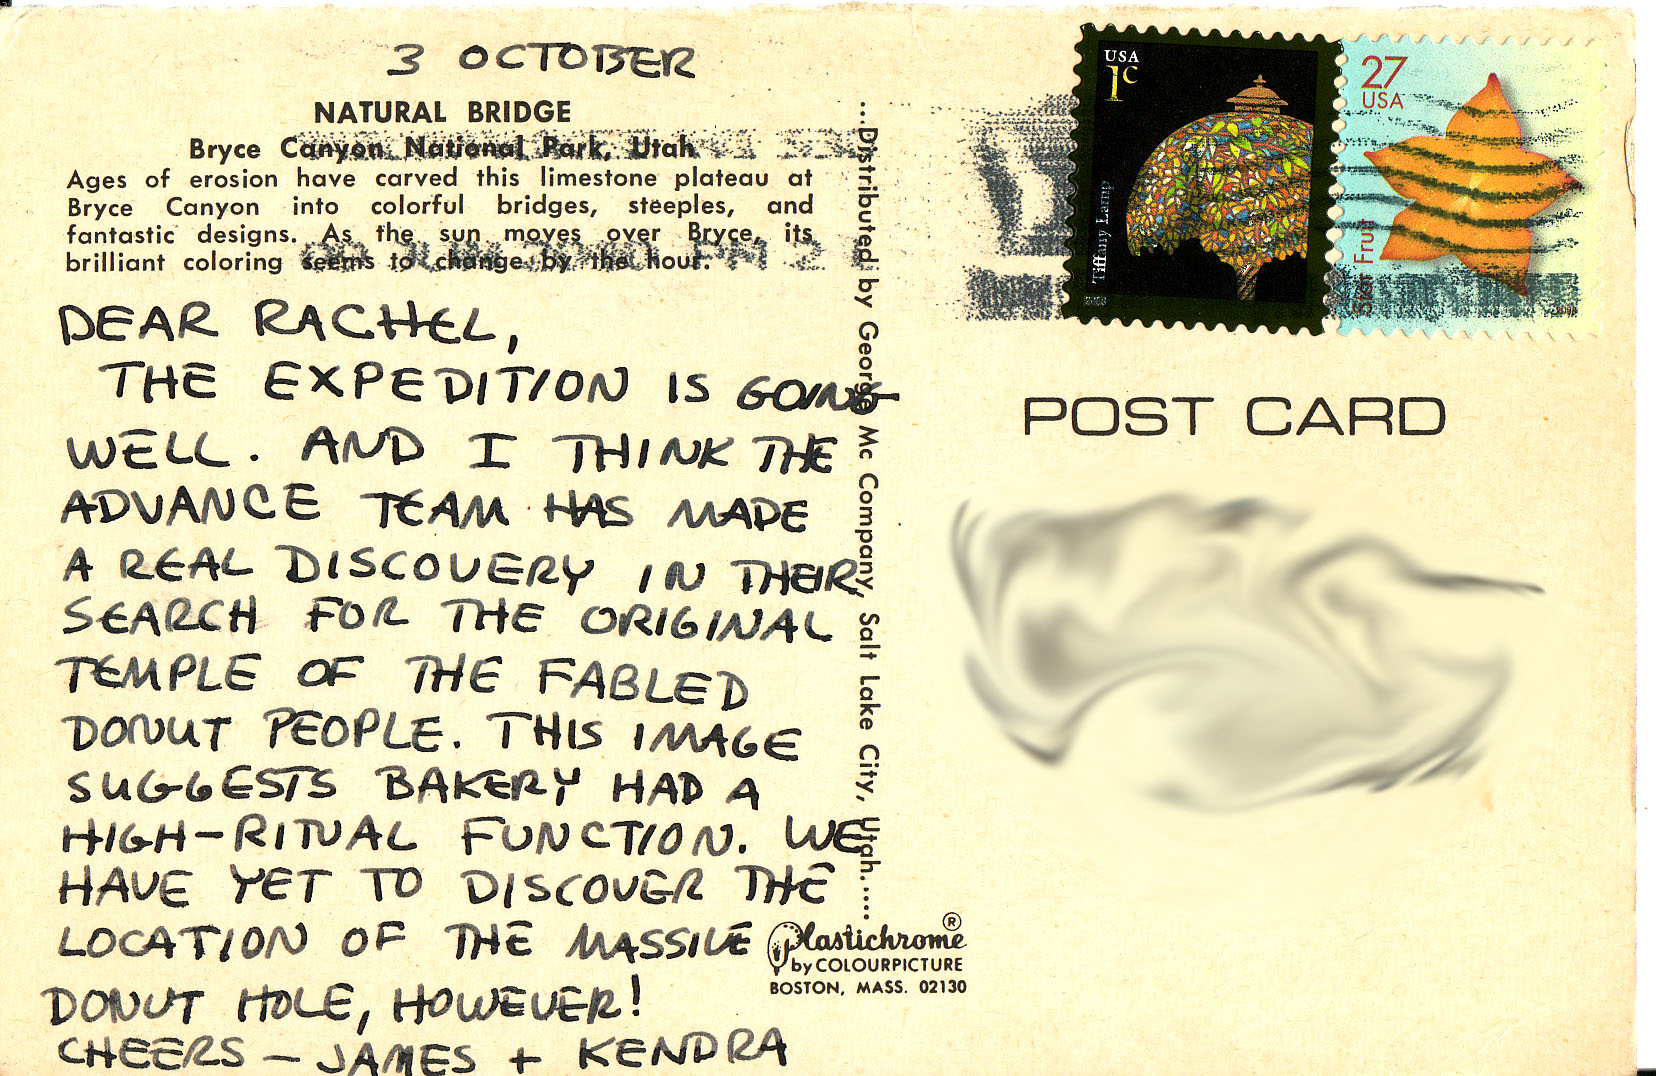 3 OCTOBER
NATURAL BRIDGE
Bryce Canyon National Park, Utah
Ages of erosion have carved this limestone plateau at
Bryce Canyon into colorful bridges, steeples, and
fantastic designs. As the sun moves over Bryce, its
brilliant coloring seems to change by the hour.
DEAR RACHEL,
THE EXPEDITION IS GOING
WELL. AND I THINK THE
ADVANCE TEAM HAS MADE
A REAL DISCOVERY IN THEIR
SEARCH FOR THE ORIGINAL
TEMPLE OF THE FABLED
DONUT PEOPLE. THIS IMAGE
SUGGESTS BAKERY HAD A
HIGH-RITUAL FUNCTION. WE
HAVE YET TO DISCOVER THE
LOCATION OF THE MASSIVE
DONUT HOLE, HOWEVER!
CHEERS - JAMES + KENDRA
...Distributed by George Mc Company, Salt Lake City, Utah.....
Plastichrome®
by COLOURPICTURE
BOSTON, MASS. 02130
USA
1c
Tiffany Lamp
2008
27
USA
Star Fruit
POST CARD